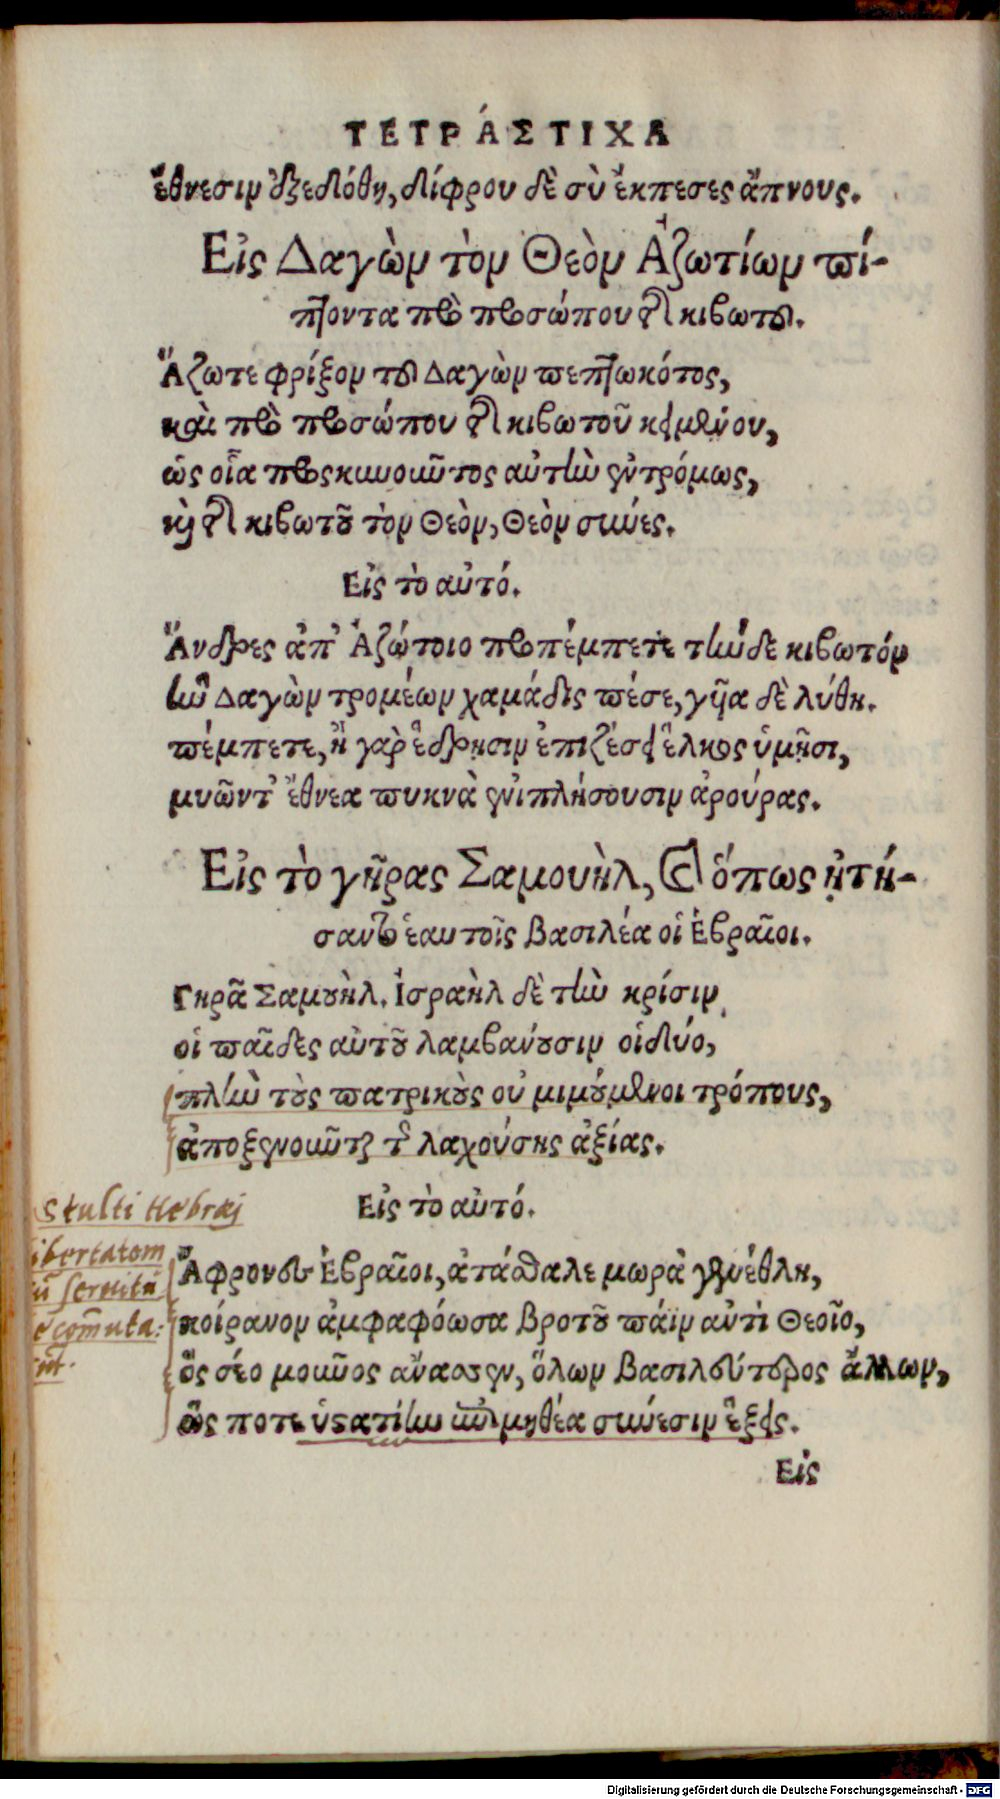 ΤΕΤΡΆΣΤΙΧΑ
ἔθνεσιν ἐξεδόθη, δίφρου δὲ σὺ ἔκπεσες ἄπνους.
Εἰς Δαγὼν τὸν Θεὸν Ἀζωτίων πί-
πτοντα πρὸ προσώπου τῆς κιβωτοῦ.
Ἄζωτε φρίξον τοῦ Δαγὼν πεπτωκότος,
καὶ πρὸ προσώπου τῆς κιβωτοῦ κειμένου,
ὡς οἷα προσκυνοῦντος αὐτὴν ἐντρόμως,
καὶ τῆς κιβωτοῦ τὸν Θεὸν, Θεὸν σύνες.
Εἰς τὸ αὐτό.
Ἄνδρες ἀπ' Ἀζώτοιο προπέμπετε τήνδε κιβωτόν
ἣν Δαγὼν τρομέων χαμάδις πέσε, γυῖα δὲ λύθη.
πέμπετε, ἢ γὰρ ἕδρῃσιν ἐπιζέσει ἕλκος ὑμῇσι,
μυῶν τ' ἔθνεα πυκνὰ ἐνιπλήσουσιν ἀρούρας.
Εἰς τὸ γῆρας Σαμουὴλ, καὶ ὅπως ᾐτή-
σαντο ἑαυτοῖς βασιλέα οἱ Ἑβραῖοι.
Γηρᾷ Σαμουήλ. Ἰσραὴλ δὲ τὴν κρίσιν
οἱ παῖδες αὐτοῦ λαμβάνουσιν οἱ δύο,
πλὴν τοὺς πατρικοὺς οὐ μιμούμενοι τρόπους,
ἀποξενοῦνται τῆς λαχούσης ἀξίας.
Stulti Hebraej
Εἰς τὸ αὐτό.
ibertatem
ũ seruitu
e com̃uta:
Ἄφρονες Ἑβραῖοι, ἀτάσθαλε μωρὰ γενέθλη,
κοίρανον ἀμφαφόωσα βροτοῦ πάϊν αὐτὶ Θεοῖο,
ὃς σέο μοῦνος ἄνασσεν, ὅλων βασιλεύτερος ἄλλων,
ὥς ποτε ὑστατίην προμηθέα σύνεσιν ἕξεις.
Εἰς
Digitalisierung gefördert durch die Deutsche Forschungsgemeinschaft - DFG